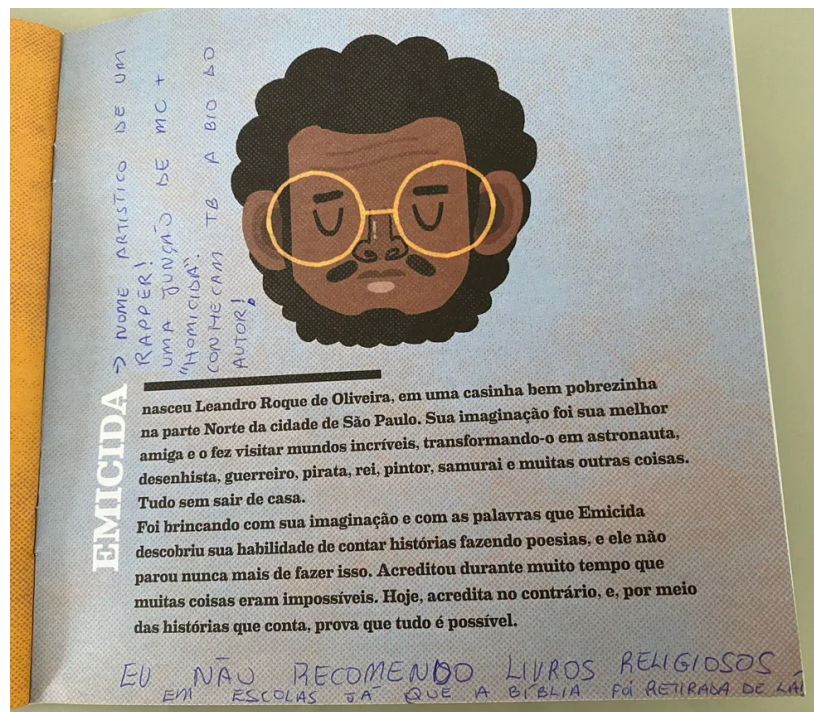 -> NOME ARTISTICO DE UM
RAPPER!
UMA JUNÇÃO DE MC +
"HOMICIDA".
CONHECAM TB A BIO DO
AUTOR!
EMICIDA
nasceu Leandro Roque de Oliveira, em uma casinha bem pobrezinha
na parte Norte da cidade de São Paulo. Sua imaginação foi sua melhor
amiga e o fez visitar mundos incríveis, transformando-o em astronauta,
desenhista, guerreiro, pirata, rei, pintor, samurai e muitas outras coisas.
Tudo sem sair de casa.
Foi brincando com sua imaginação e com as palavras que Emicida
descobriu sua habilidade de contar histórias fazendo poesias, e ele não
parou nunca mais de fazer isso. Acreditou durante muito tempo que
muitas coisas eram impossíveis. Hoje, acredita no contrário, e, por meio
das histórias que conta, prova que tudo é possível.
EU NÃO RECOMENDO LIVROS RELIGIOSOS
EM ESCOLAS JÁ QUE A BÍBLIA FOI RETIRADA DE LÁ!